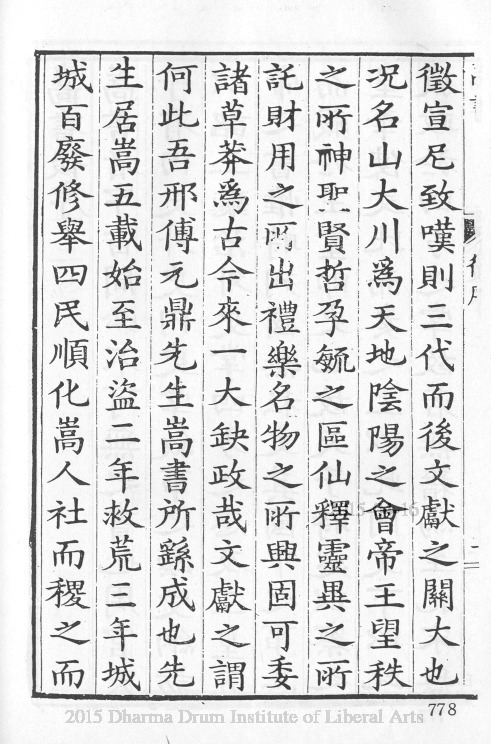 徵宣尼致嘆則三代而後文獻之關大也
况名山大川爲天地陰陽之會帝王望秩
之所神聖賢哲孕毓之區仙釋靈異之所
託財用之所出禮樂名物之所興固可委
諸草莽爲古今來一大缺政哉文獻之謂
何此吾邢傅元鼎先生嵩書所繇成也先
生居嵩五載始至治盜二年救荒三年城
城百廢修舉四民順化嵩人社而稷之而
778
2015 Dharma Drum Institute of Liberal Arts